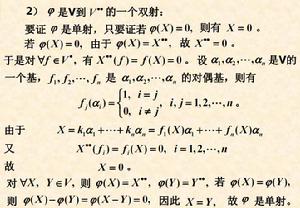 2） φ是V到V**的一个双射：
要证 φ 是单射，只要证若φ(X)=0, 则有 X=0 。
若 φ(X)=0, 由于 φ(X)=X**, 故 X**=0 。
于是对∀f∈V*, 有 X**(f)=f(X)=0 。设 α₁,α₂,⋯,αₙ 是V的
一个基，f₁,f₂,⋯,fₙ 是 α₁,α₂,⋯,αₙ 的对偶基，则有
fⱼ(αᵢ)={1, i=j; 0, i≠j, i,j=1,2,⋯,n。
由于 X=k₁α₁+⋯+kₙαₙ=f₁(X)α₁+⋯+fₙ(X)αₙ
又 X**(fᵢ)=fᵢ(X)=0, i=1,2,⋯,n
故 X=0 。
对∀X, Y∈V, 则 φ(X)=X**, φ(Y)=Y**, 若 φ(X)=φ(Y),
则 φ(X)-φ(Y)=φ(X-Y)=0, 因此 X=Y, 故 φ 是单射。